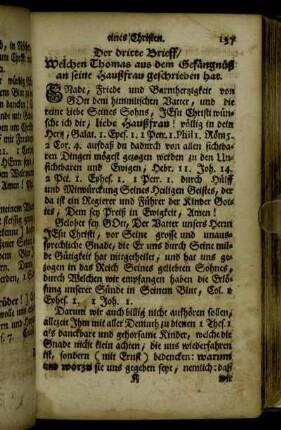 eines Christen. 137
Der dritte Brieff/
Welchen Thomas aus dem Gefängnüß
an seine Haußfrau geschrieben hat.
GNade, Friede und Barmhertzigkeit von
GOtt dem himmlischen Vatter, und die
reine Liebe Seines Sohns, JEsu Christi wün-
sche ich dir, liebe Haußfrau! völlig in dein
Hertz, Galat. 1. Epes. 1. 1 Petr. 1. Phil 1. Röm 5.
2 Cor. 4. aufdaß du dadurch von allen sichtba-
ren Dingen mögest gezogen werden zu den Un-
sichtbaren und Ewigen, Hebr. 11. Joh. 14.
2 Pet. 1. Ephes. 1 1 Petr. 1. durch Hülff
und Mitwürckung Seines Heiligen Geistes, der
da ist ein Regierer und Führer der Kinder Got-
tes, Dem sey Preiß in Ewigkeit, Amen!
Gelobet sey GOtt, Der Vatter unsers Herrn
JEsu Christi, vor Seine grosse und unaus-
sprechliche Gnade, die Er uns durch Seine mil-
de Gütigkeit hat mitgetheilet, und hat uns ge-
zogen in das Reich Seines geliebten Sohnes,
durch Welchen wir empfangen haben die Erlö-
sung unserer Sünde in Seinem Blut, Col. 1
Ephes. 1. 1 Joh. 1.
Darum wir auch billig nicht aufhören sollen,
allezeit Ihm mit aller Demuth zu dienen 1 Thes. 1
als danckbare und gehorsame Kinder, welche die
Gnade nicht klein achten, die uns wiederfahren
ist, sondern (mit Ernst) bedencken: warum
und worzu sie uns gegeben seye, nemlich: daß
K wir